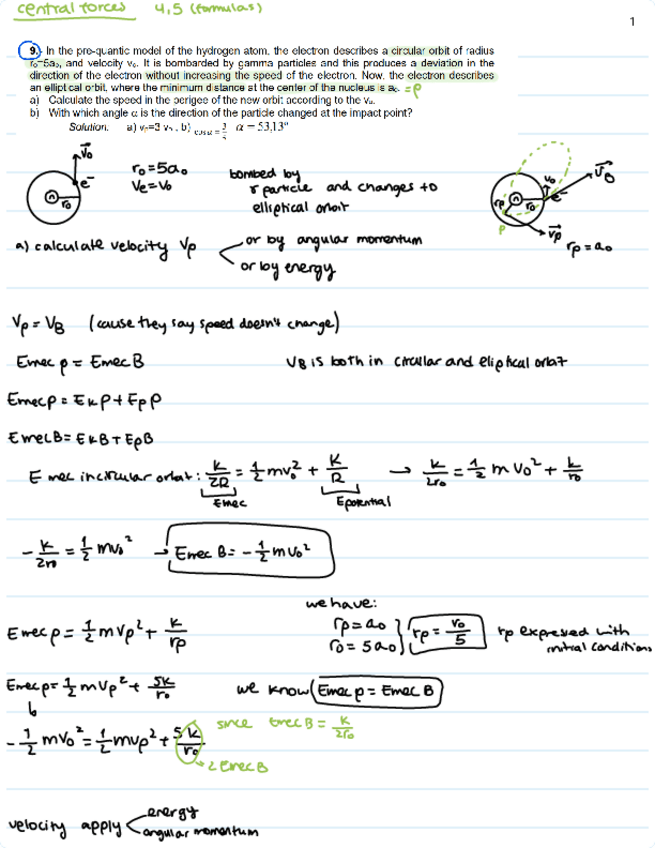 central forces 4,5 (formulas)
1
9. In the pre-quantic model of the hydrogen atom, the electron describes a circular orbit of radius
r₀=5a₀, and velocity v₀. It is bombarded by gamma particles and this produces a deviation in the
direction of the electron without increasing the speed of the electron. Now, the electron describes
an elliptical orbit, where the minimum distance at the center of the nucleus is a₀. = P
a) Calculate the speed in the perigee of the new orbit according to the v₀.
b) With which angle α is the direction of the particle changed at the impact point?
Solution: a) vₚ=3 v₀, b) cos α = 3/5 α = 53,13°
v₀
e⁻
r₀
r₀ = 5a₀
Ve = V₀
bombed by
γ particle and changes to
elliptical orbit
v₀
V_B
e⁻
rp
r₀
P
vp
rp = a₀
a) calculate velocity Vp
or by angular momentum
or by energy
Vp = V_B (cause they say speed doesn't change)
Emec p = Emec B
V_B is both in circular and eliptical orbit
Emec p = Ek P + Ep P
Emec B = Ek B + Ep B
E mec in circular orbit: k/2R = 1/2 mv₀² + k/R → k/2r₀ = 1/2 m V₀² + k/r₀
Emec
Epotential
- k/2r₀ = 1/2 mv₀² → Emec B = - 1/2 m V₀²
we have:
Emec p = 1/2 m Vp² + k/rp
rp = a₀
r₀ = 5a₀
rp = r₀/5
rp expressed with
initial conditions
Emec p = 1/2 m Vp² + 5k/r₀
we know Emec p = Emec B
- 1/2 mV₀² = 1/2 mvp² + 5k/r₀
since Emec B = k/2r₀
2 Emec B
velocity apply
energy
angular momentum